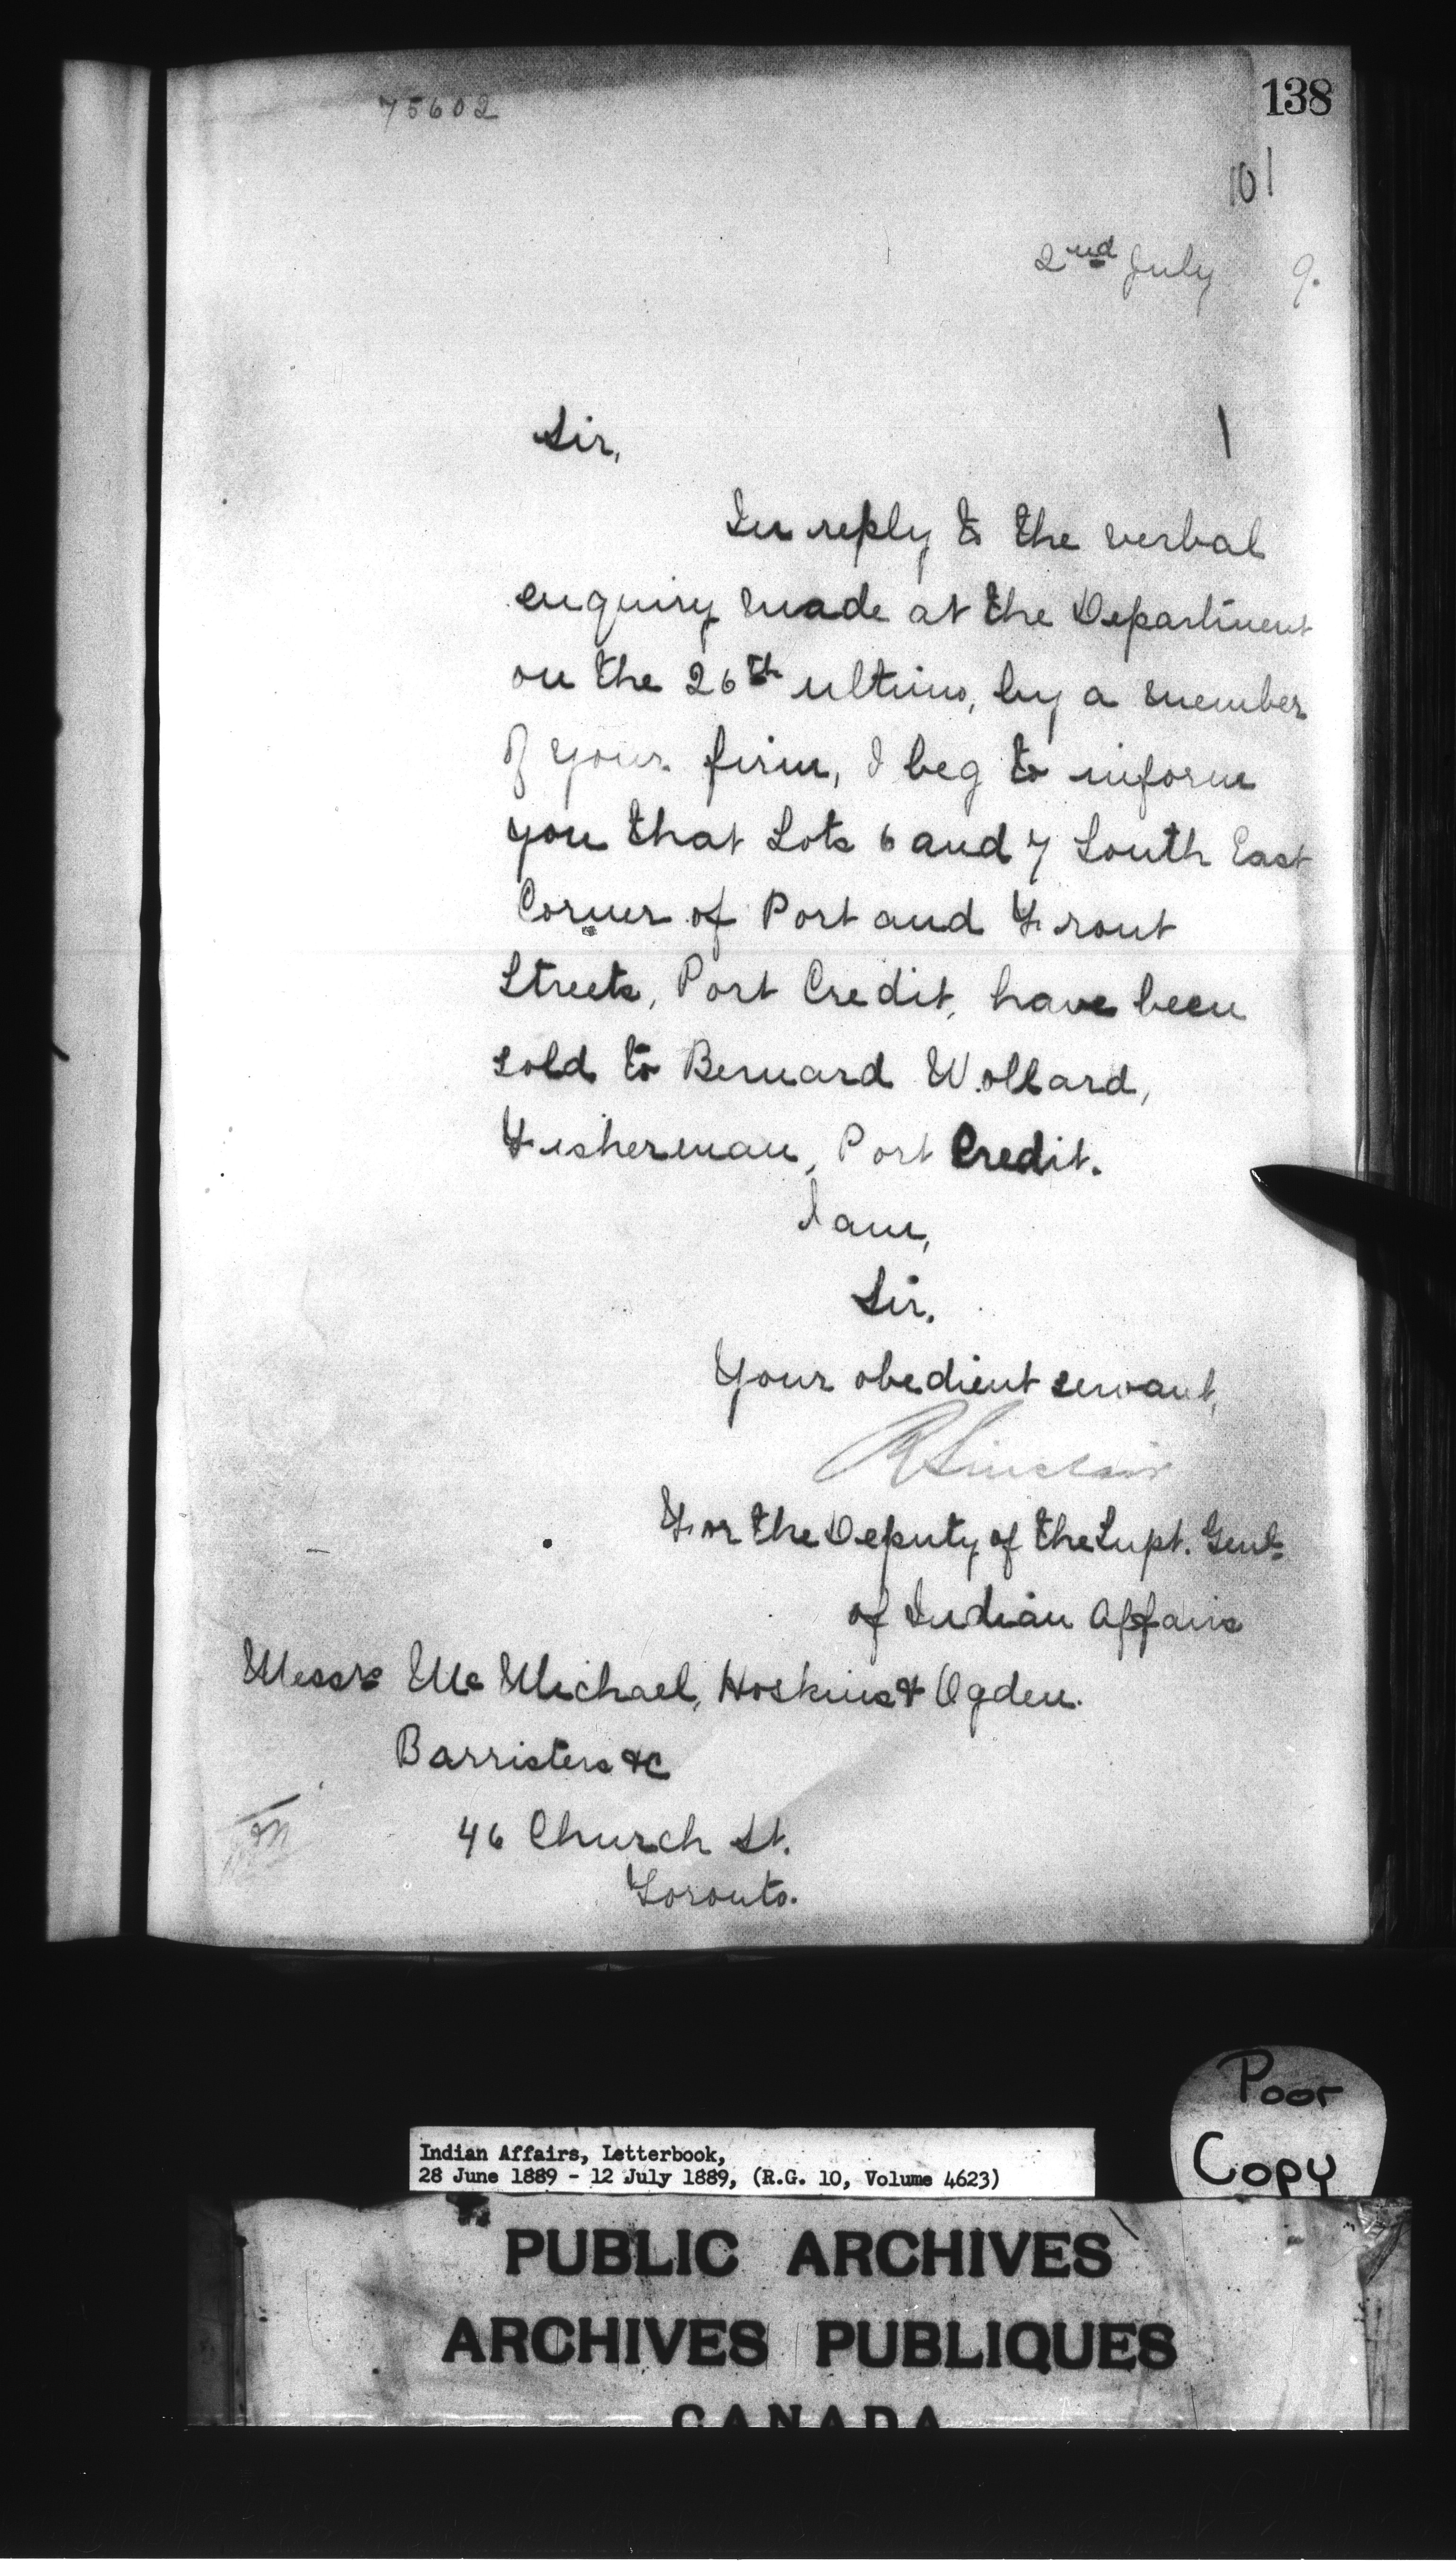 75602
138
101
2nd July 9.
Sir,
In reply to the verbal
enquiry made at the Department
on the 26th ultimo, by a member
of your firm, I beg to inform
you that Lots 6 and 7 South East
Corner of Port and Front
Streets, Port Credit, have been
sold to Bernard Wollard,
Fisherman, Port Credit.
I am,
Sir,
Your obedient servant,
R Sinclair
For the Deputy of the Supt. Genl.
of Indian Affairs
Messrs McMichael, Hoskins & Ogden.
Barristers &c
46 Church St.
Toronto.
Poor
Copy
Indian Affairs, Letterbook,
28 June 1889 - 12 July 1889, (R.G. 10, Volume 4623)
PUBLIC ARCHIVES
ARCHIVES PUBLIQUES
CANADA